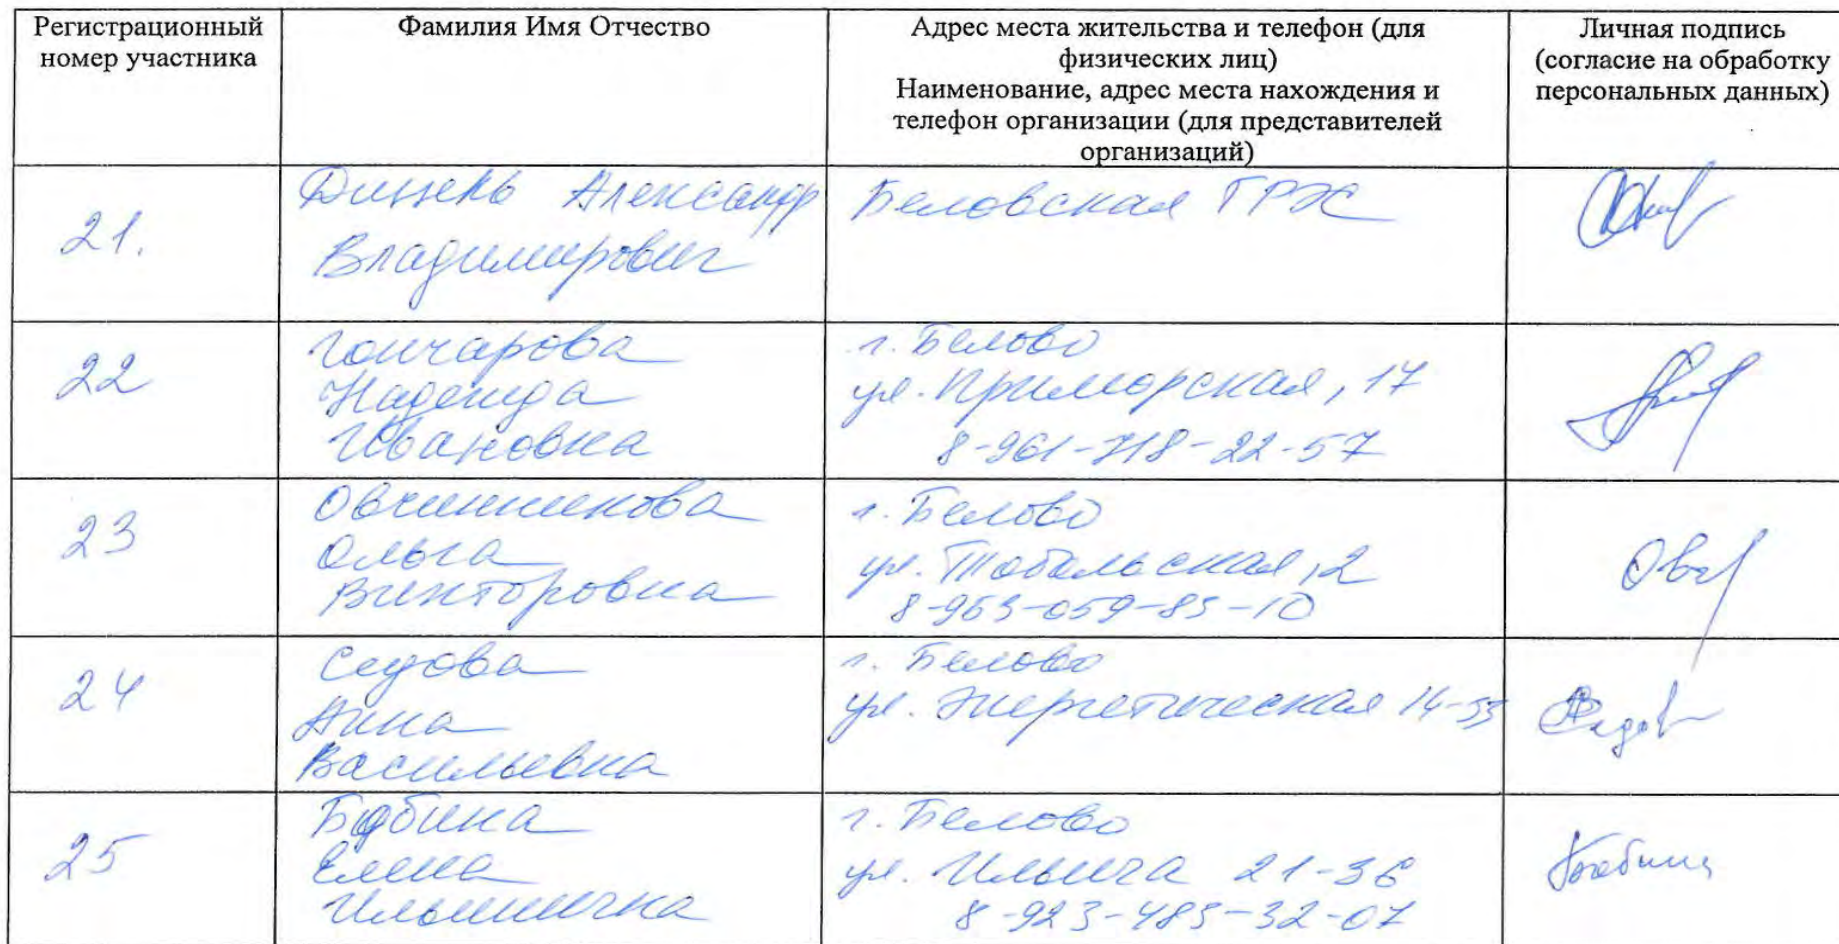 Регистрационный
номер участника
Фамилия Имя Отчество
Адрес места жительства и телефон (для
физических лиц)
Наименование, адрес места нахождения и
телефон организации (для представителей
организаций)
Личная подпись
(согласие на обработку
персональных данных)
21.
Александр
Владимирович
Беловская ГРЭС
22
Гончарова
Надежда
Ивановна
г. Белово
ул. Приморская, 17
8-961-718-22-57
23
Овчинникова
Ольга
Викторовна
г. Белово
ул. Тобольская, 2
8-963-059-85-10
24
Седова
Анна
Васильевна
г. Белово
ул. Энергетическая 14-53
25
Бабина
Елена
Ильинична
г. Белово
ул. Ильича 21-36
8-923-485-32-07